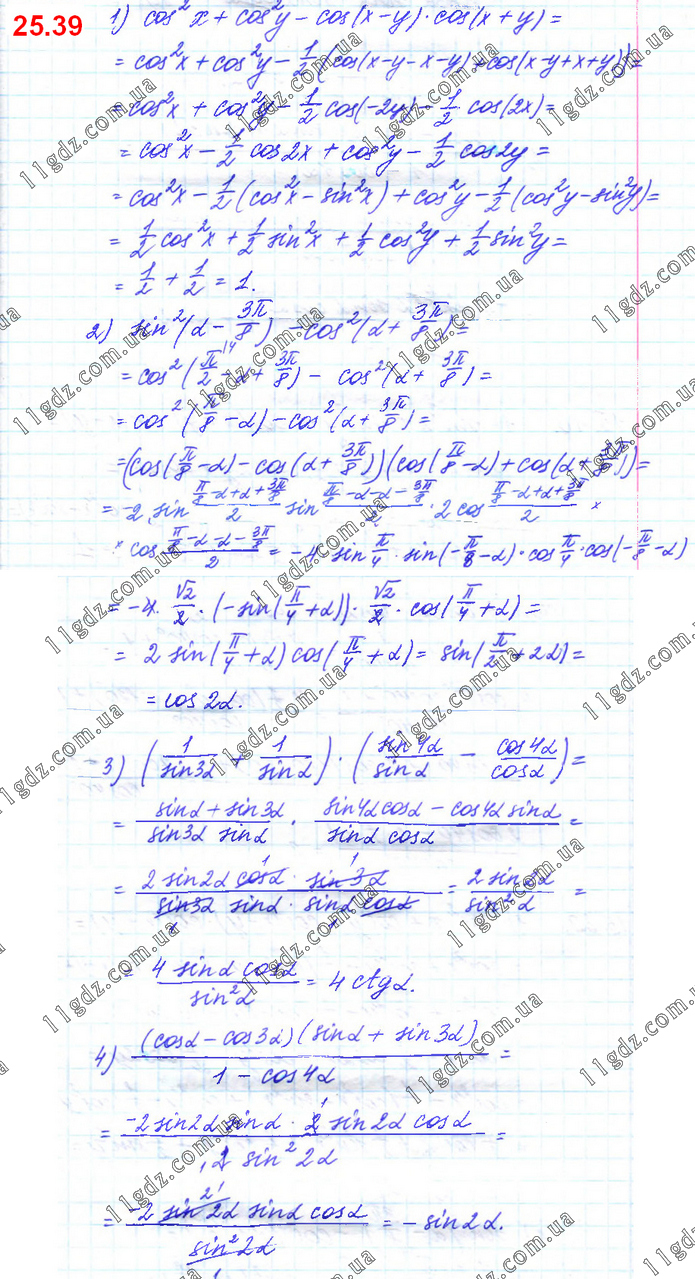 25.39
1) cos²x + cos²y − cos(x−y)·cos(x+y) =
= cos²x + cos²y − 1/2 (cos(x−y−x−y) + cos(x−y+x+y)) =
= cos²x + cos²y − 1/2 cos(−2y) − 1/2 cos(2x) =
= cos²x − 1/2 cos2x + cos²y − 1/2 cos2y =
= cos²x − 1/2 (cos²x − sin²x) + cos²y − 1/2 (cos²y − sin²y) =
= 1/2 cos²x + 1/2 sin²x + 1/2 cos²y + 1/2 sin²y =
= 1/2 + 1/2 = 1.
2) sin²(α − 3π/8) − cos²(α + 3π/8) =
= cos²(π/2 − α + 3π/8) − cos²(α + 3π/8) =
= cos²(π/8 − α) − cos²(α + 3π/8) =
= (cos(π/8 − α) − cos(α + 3π/8)) (cos(π/8 − α) + cos(α + 3π/8)) =
= −2 sin (π/8 − α + α + 3π/8)/2 sin (π/8 − α − α − 3π/8)/2 · 2 cos (π/8 − α + α + 3π/8)/2 ×
× cos (π/8 − α − α − 3π/8)/2 = −4 sin π/4 · sin(−π/8 − α) · cos π/4 · cos(−π/8 − α)
= −4 · √2/2 · (−sin(π/4 + α)) · √2/2 · cos(π/4 + α) =
= 2 sin(π/4 + α) cos(π/4 + α) = sin(π/2 + 2α) =
= cos 2α.
3) (1/sin3α + 1/sinα) · (sin4α/sinα − cos4α/cosα) =
= (sinα + sin3α)/(sin3α sinα) · (sin4α cosα − cos4α sinα)/(sinα cosα) =
= (2 sin2α cosα · sin3α)/(sin3α sinα · sinα cosα) = 2 sin2α/sin²α =
= (4 sinα cosα)/sin²α = 4 ctgα.
4) ((cosα − cos3α)(sinα + sin3α))/(1 − cos4α) =
= (−2 sin2α sinα · 2 sin2α cosα)/(2 sin²2α) =
= (−2 sin²2α sinα cosα)/(sin²2α) = − sin2α.
11gdz.com.ua